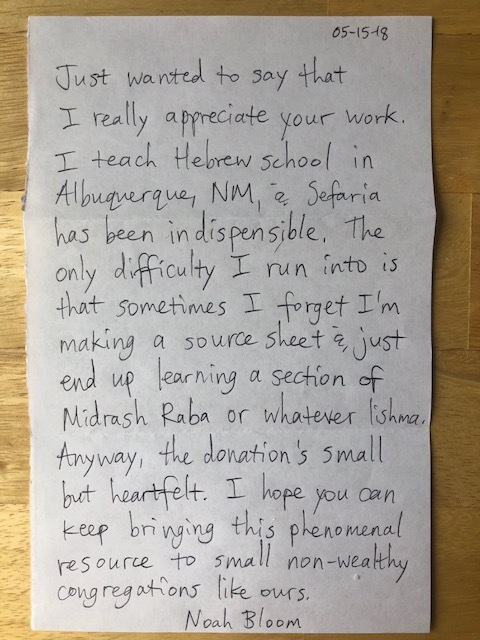 05-15-18
Just wanted to say that
I really appreciate your work.
I teach Hebrew school in
Albuquerque, NM, & Sefaria
has been indispensible. The
only difficulty I run into is
that sometimes I forget I'm
making a source sheet &, just
end up learning a section of
Midrash Raba or whatever lishma.
Anyway, the donation's small
but heartfelt. I hope you can
keep bringing this phenomenal
resource to small non-wealthy
congregations like ours.
Noah Bloom